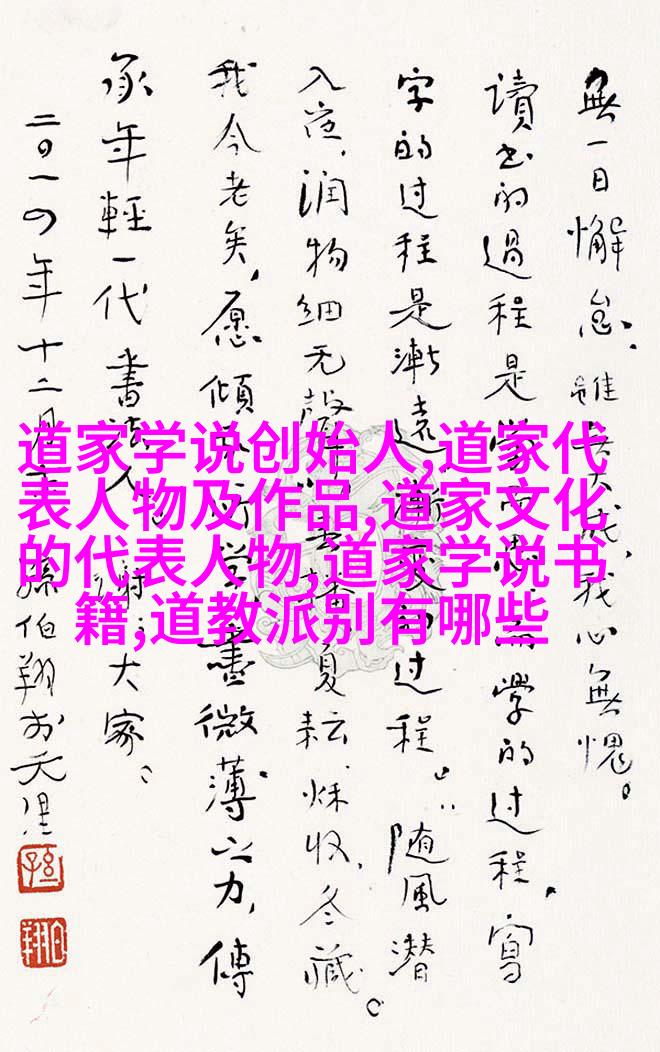 無一日懈怠，雖無大成，我心無愧。
讀书的過程是學而思，而學的过程，寫
字的过程是漸遠漸过程。随風潜
入夜，润物细无聲，春播夏耘，秌收，冬藏。
我今老矣，愿傾所学，盡微薄之力，傳
承年輕一代書法人，谢大家。
二〇一四年十二月孫伯翔於天津
道家学说创始人,道家代
表人物及作品,道家文化
的代表人物,道家学说书
籍,道教派别有哪些